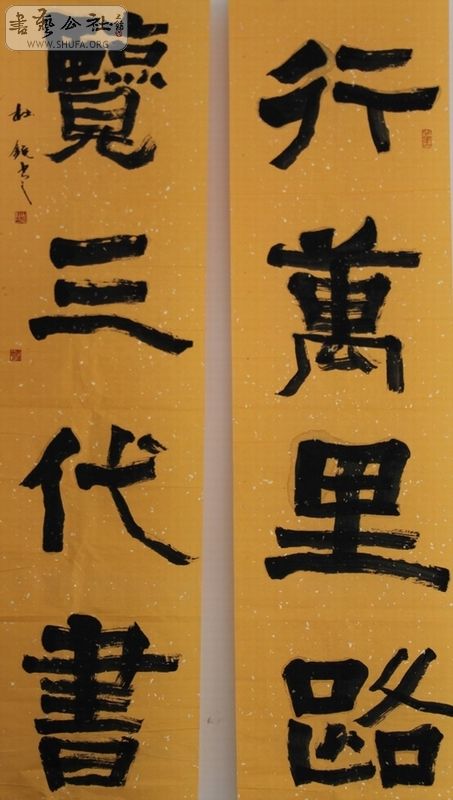 行萬里路
覽三代書
書藝公社
WWW.SHUFA.ORG